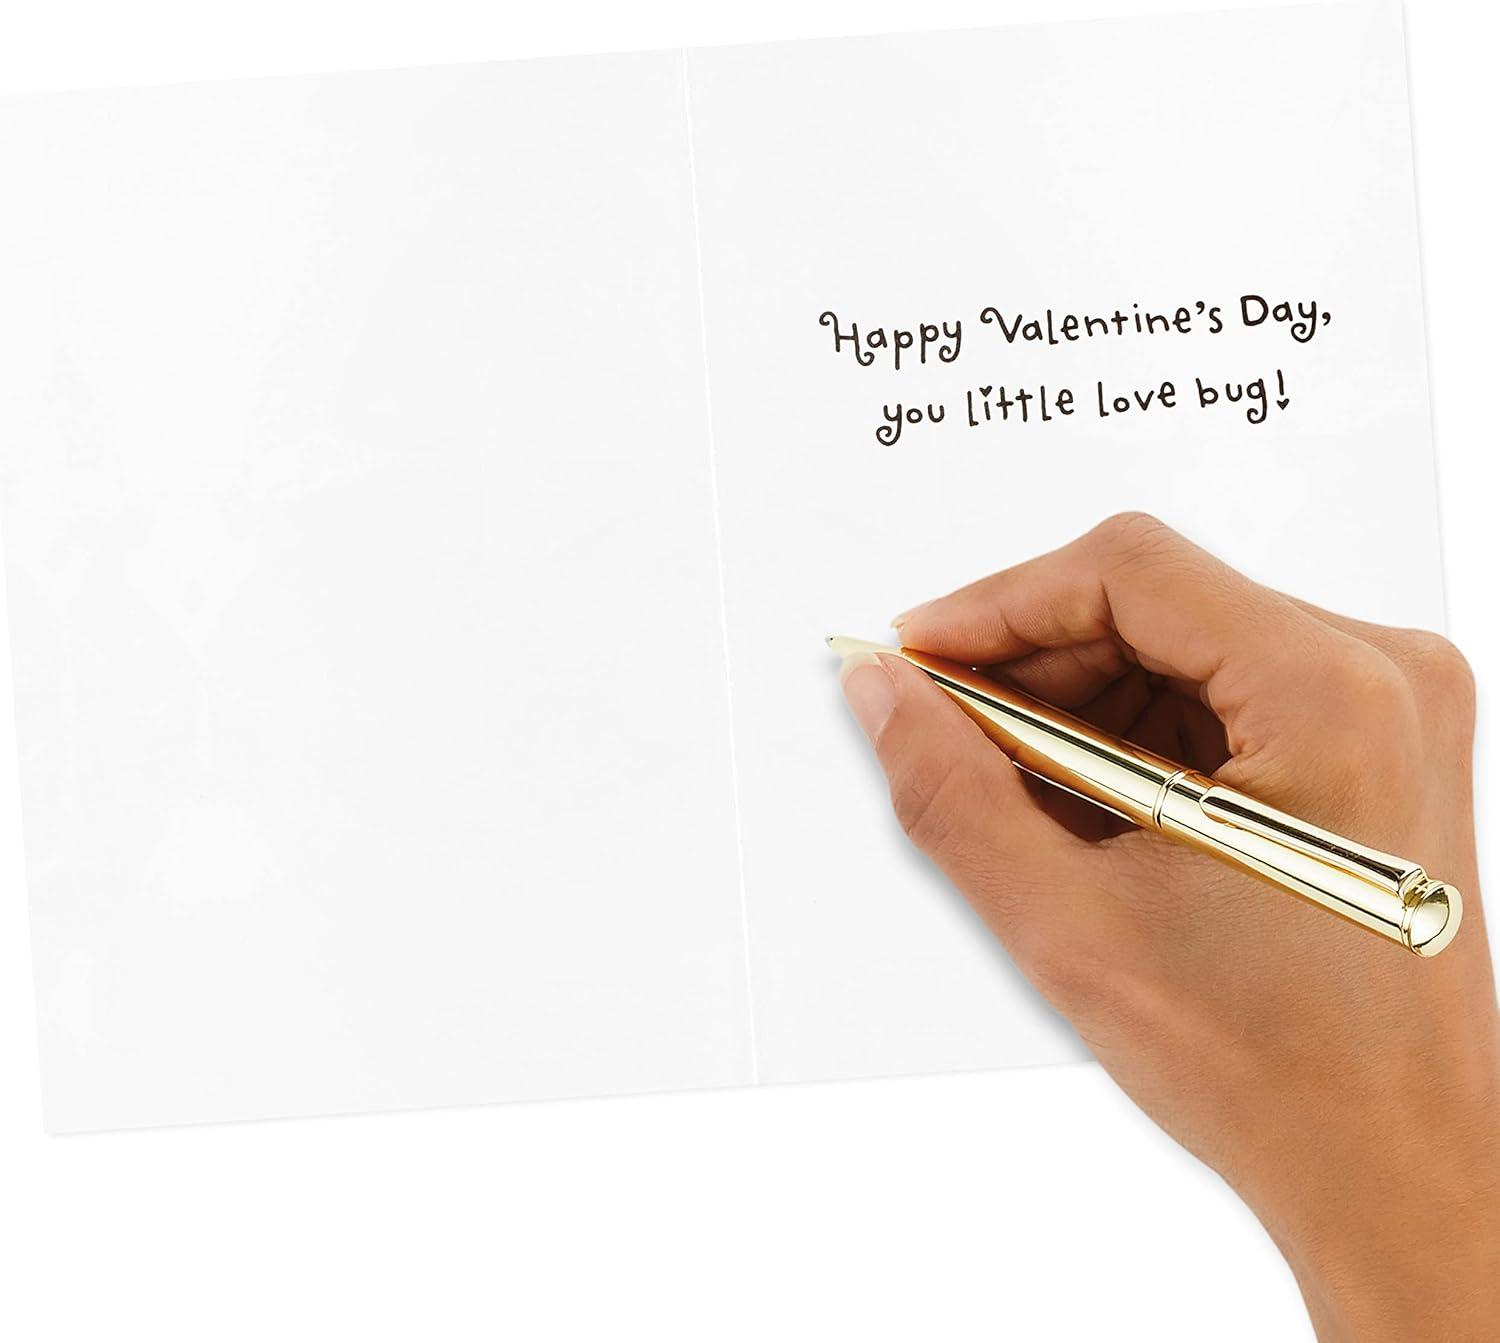 Happy Valentine's Day,
you little love bug!